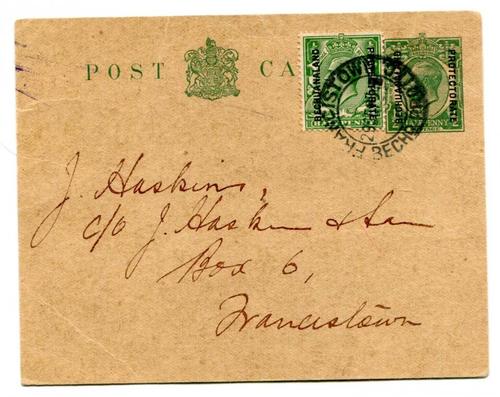 POST CA
BECHUANALAND
PROTECTORATE
BECHUANALAND
PROTECTORATE
PENNY
FRANCISTOWN
BECH
29
J. Haskins,
c/o J. Haskins & Son
Box 6,
Francistown